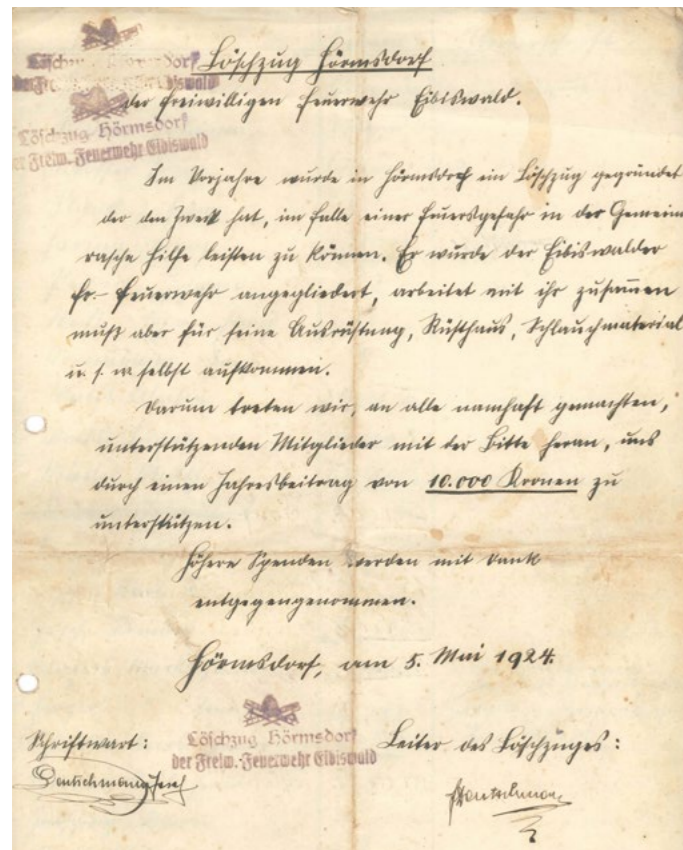 Löschzug Hörmsdorf
der Freiw. Feuerwehr Eibiswald
Löschzug Hörmsdorf
der freiwilligen Feuerwehr Eibiswald.
Löschzug Hörmsdorf
der Freiw. Feuerwehr Eibiswald
Im Vorjahre wurde in Hörmsdorf ein Löschzug gegründet
der den Zweck hat, im Falle einer Feuersgefahr in der Gemein
rasche Hilfe leisten zu können. Er wurde der Eibiswalder
fr. Feuerwehr angegliedert, arbeitet mit ihr zusam̄en
muß aber für seine Ausrüstung, Rüsthaus, Schlauchmaterial
u. s. w selbst aufkommen.
Darum treten wir, an alle namhaft gemachten,
unterstützenden Mitglieder mit der Bitte heran, uns
durch einen Jahresbeitrag von 10.000 Kronen zu
unterstützen.
Höhere Spenden werden mit Dank
entgegengenommen.
Hörmsdorf, am 5. Mai 1924.
Löschzug Hörmsdorf
der Freiw. Feuerwehr Eibiswald
Schriftwart:
Leiter des Löschzuges:
Deutschmann Josef